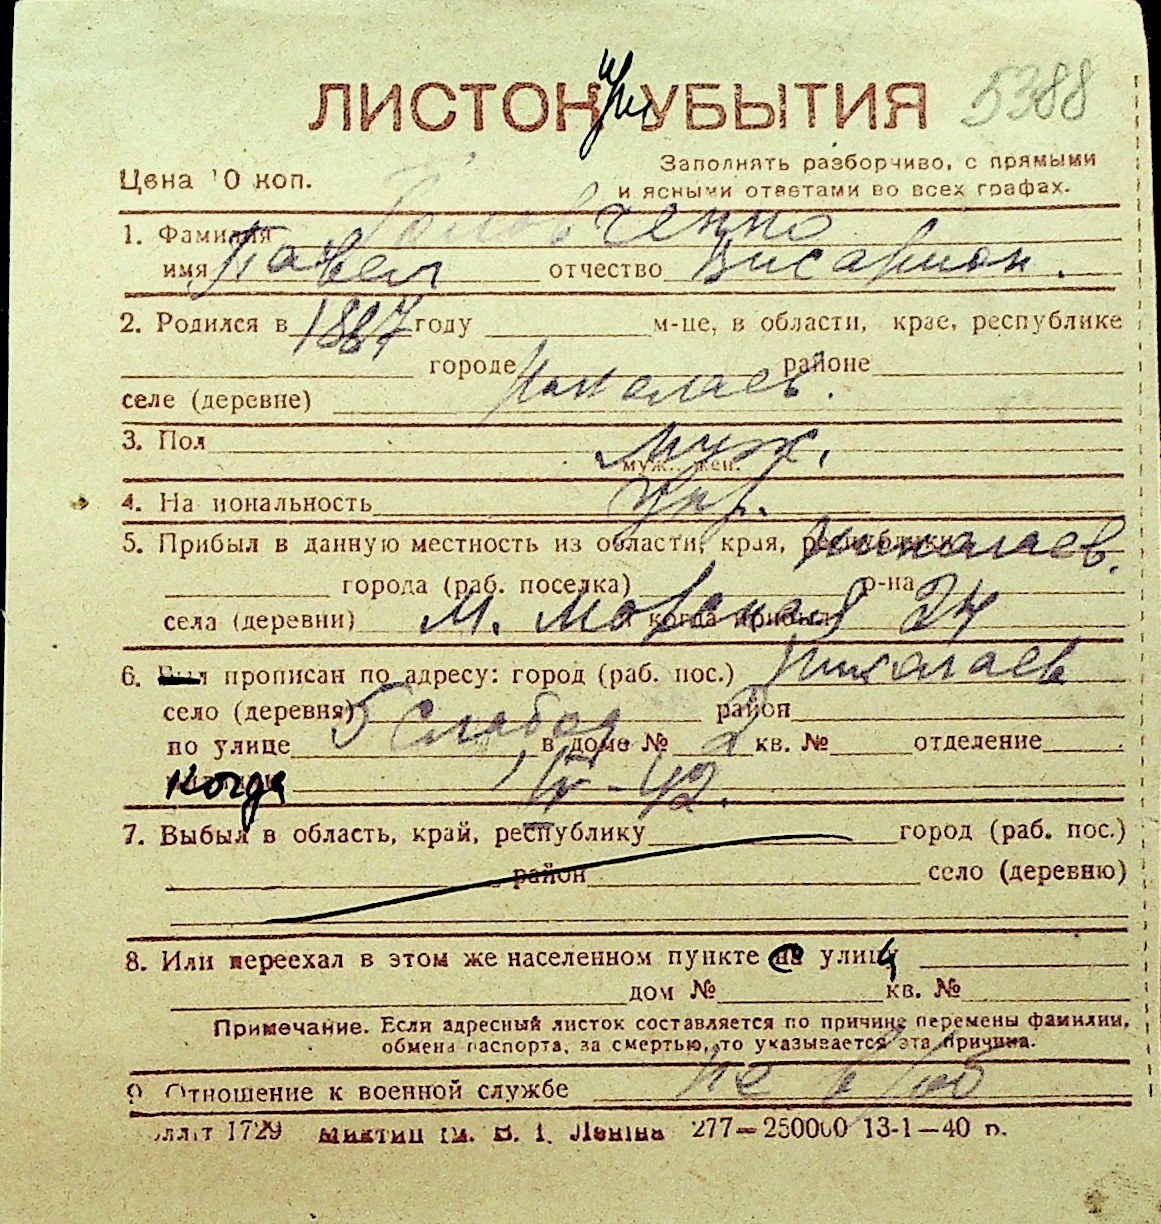 ЛИСТОК при УБЫТИЯ 5388
Цена 10 коп.
Заполнять разборчиво, с прямыми
и ясными ответами во всех графах.
1. Фамилия Головченко
имя Павел отчество Висарион.
2. Родился в 1887 году м-це, в области, крае, республике
городе Николаев. районе
селе (деревне)
3. Пол муж.
муж., жен.
4. На иональность Укр.
5. Прибыл в данную местность из области, края, республики Николаев.
города (раб. поселка) р-на
села (деревни) М. когда прибыл 24
6. прописан по адресу: город (раб. пос.) Николаев
село (деревня) район
по улице 5 Слабод в доме № 2 кв. № отделение
когда IV-42.
7. Выбыл в область, край, республику город (раб. пос.)
район село (деревню)
8. Или переехал в этом же населенном пункте с улиц
дом № кв. №
Примечание. Если адресный листок составляется по причине перемены фамилии,
обмена паспорта, за смертью, то указывается эта причина.
9 Отношение к военной службе не в/об
1729 им. В. І. Леніна 277—250000 13-1—40 р.